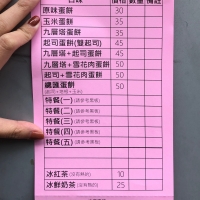 口味 價格 數量 備註
原味蛋餅 30
玉米蛋餅 35
九層塔蛋餅 35
起司蛋餅(雙起司) 45
九層塔+起司蛋餅 45
九層塔+雪花肉蛋餅 50
起司+雪花肉蛋餅 50
蛋餅 50
特餐(一)
特餐(二)
特餐(三)
特餐(四)
特餐(五)
冰紅茶 10
冰鮮奶茶 25